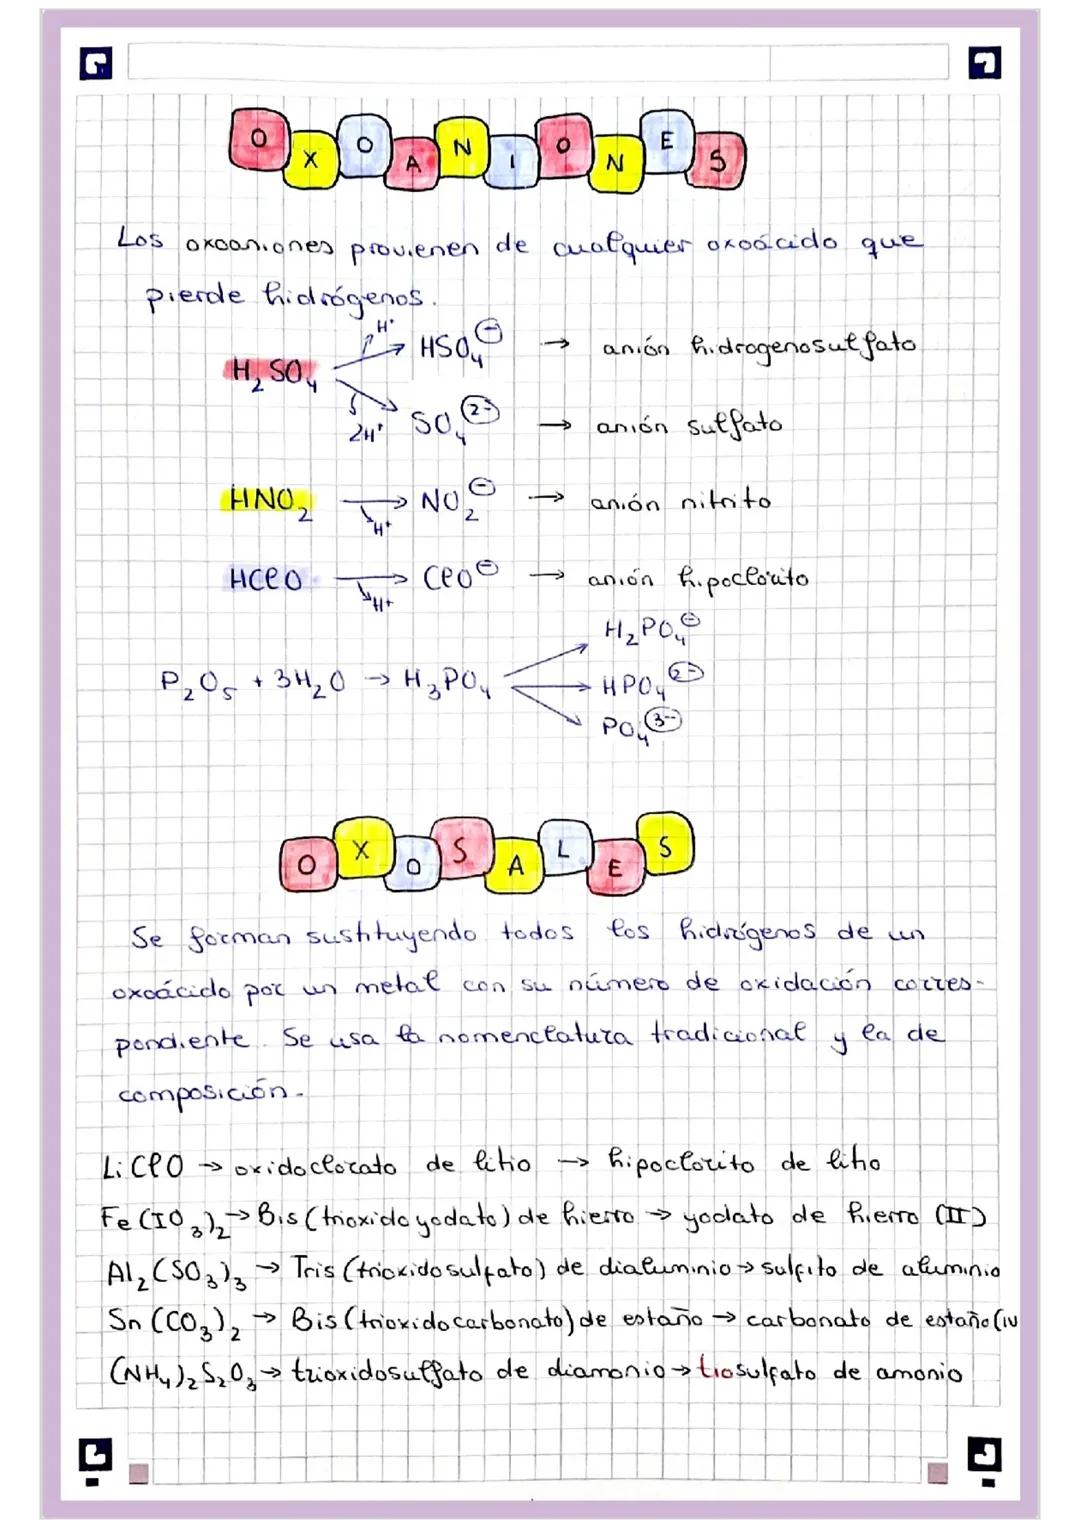 OXOANIONES
Los oxoaniones provienen de cualquier oxoácido que
pierde hidrógenos.
H₂SO₄ H⁺ → HSO₄⁻ → anión hidrogenosulfato
2H⁺ SO₄²⁻ → anión sulfato
HNO₂ → NO₂⁻ → anión nitrito
H⁺
HClO → ClO⁻ → anión hipoclorito
H⁺
H₂PO₄⁻
P₂O₅ + 3H₂O → H₃PO₄ → HPO₄²⁻
PO₄³⁻
OXOSALES
Se forman sustituyendo todos los hidrógenos de un
oxoácido por un metal con su número de oxidación corres-
pondiente. Se usa la nomenclatura tradicional y la de
composición.
LiClO → oxidoclorato de litio → hipoclorito de litio
Fe(IO₃)₂ → Bis(trioxidoyodato) de hierro → yodato de hierro (II)
Al₂(SO₃)₃ → Tris(trioxidosulfato) de dialuminio → sulfito de aluminio
Sn(CO₃)₂ → Bis(trioxidocarbonato) de estaño → carbonato de estaño (IV
(NH₄)₂S₂O₃ → trioxidosulfato de diamonio → tiosulfato de amonio